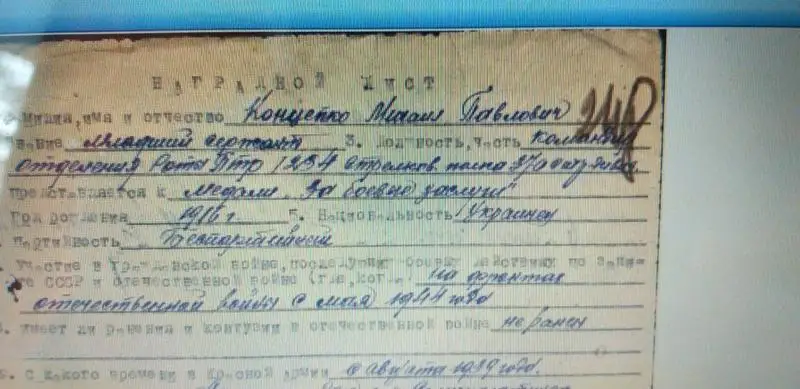 НАГРАДНОЙ ЛИСТ
милия, имя и отчество Михаил Павлович
вание младший сержант 3. должность, часть командир
отделения роты ПТР 1234 стрелков. полка 370
представляется к медали "За боевые заслуги"
Год рождения 1916 г. 5. Национальность Украинец
партийность Беспартийный
участие в гражданской войне, последующих боевых действиях по защи-
те СССР и отечественной войне (где, когда) на фронтах
отечественной войны с мая 1944 года
имеет ли ранения и контузии в отечественной войне не ранен
с какого времени в Красной армии с августа 1939 года.